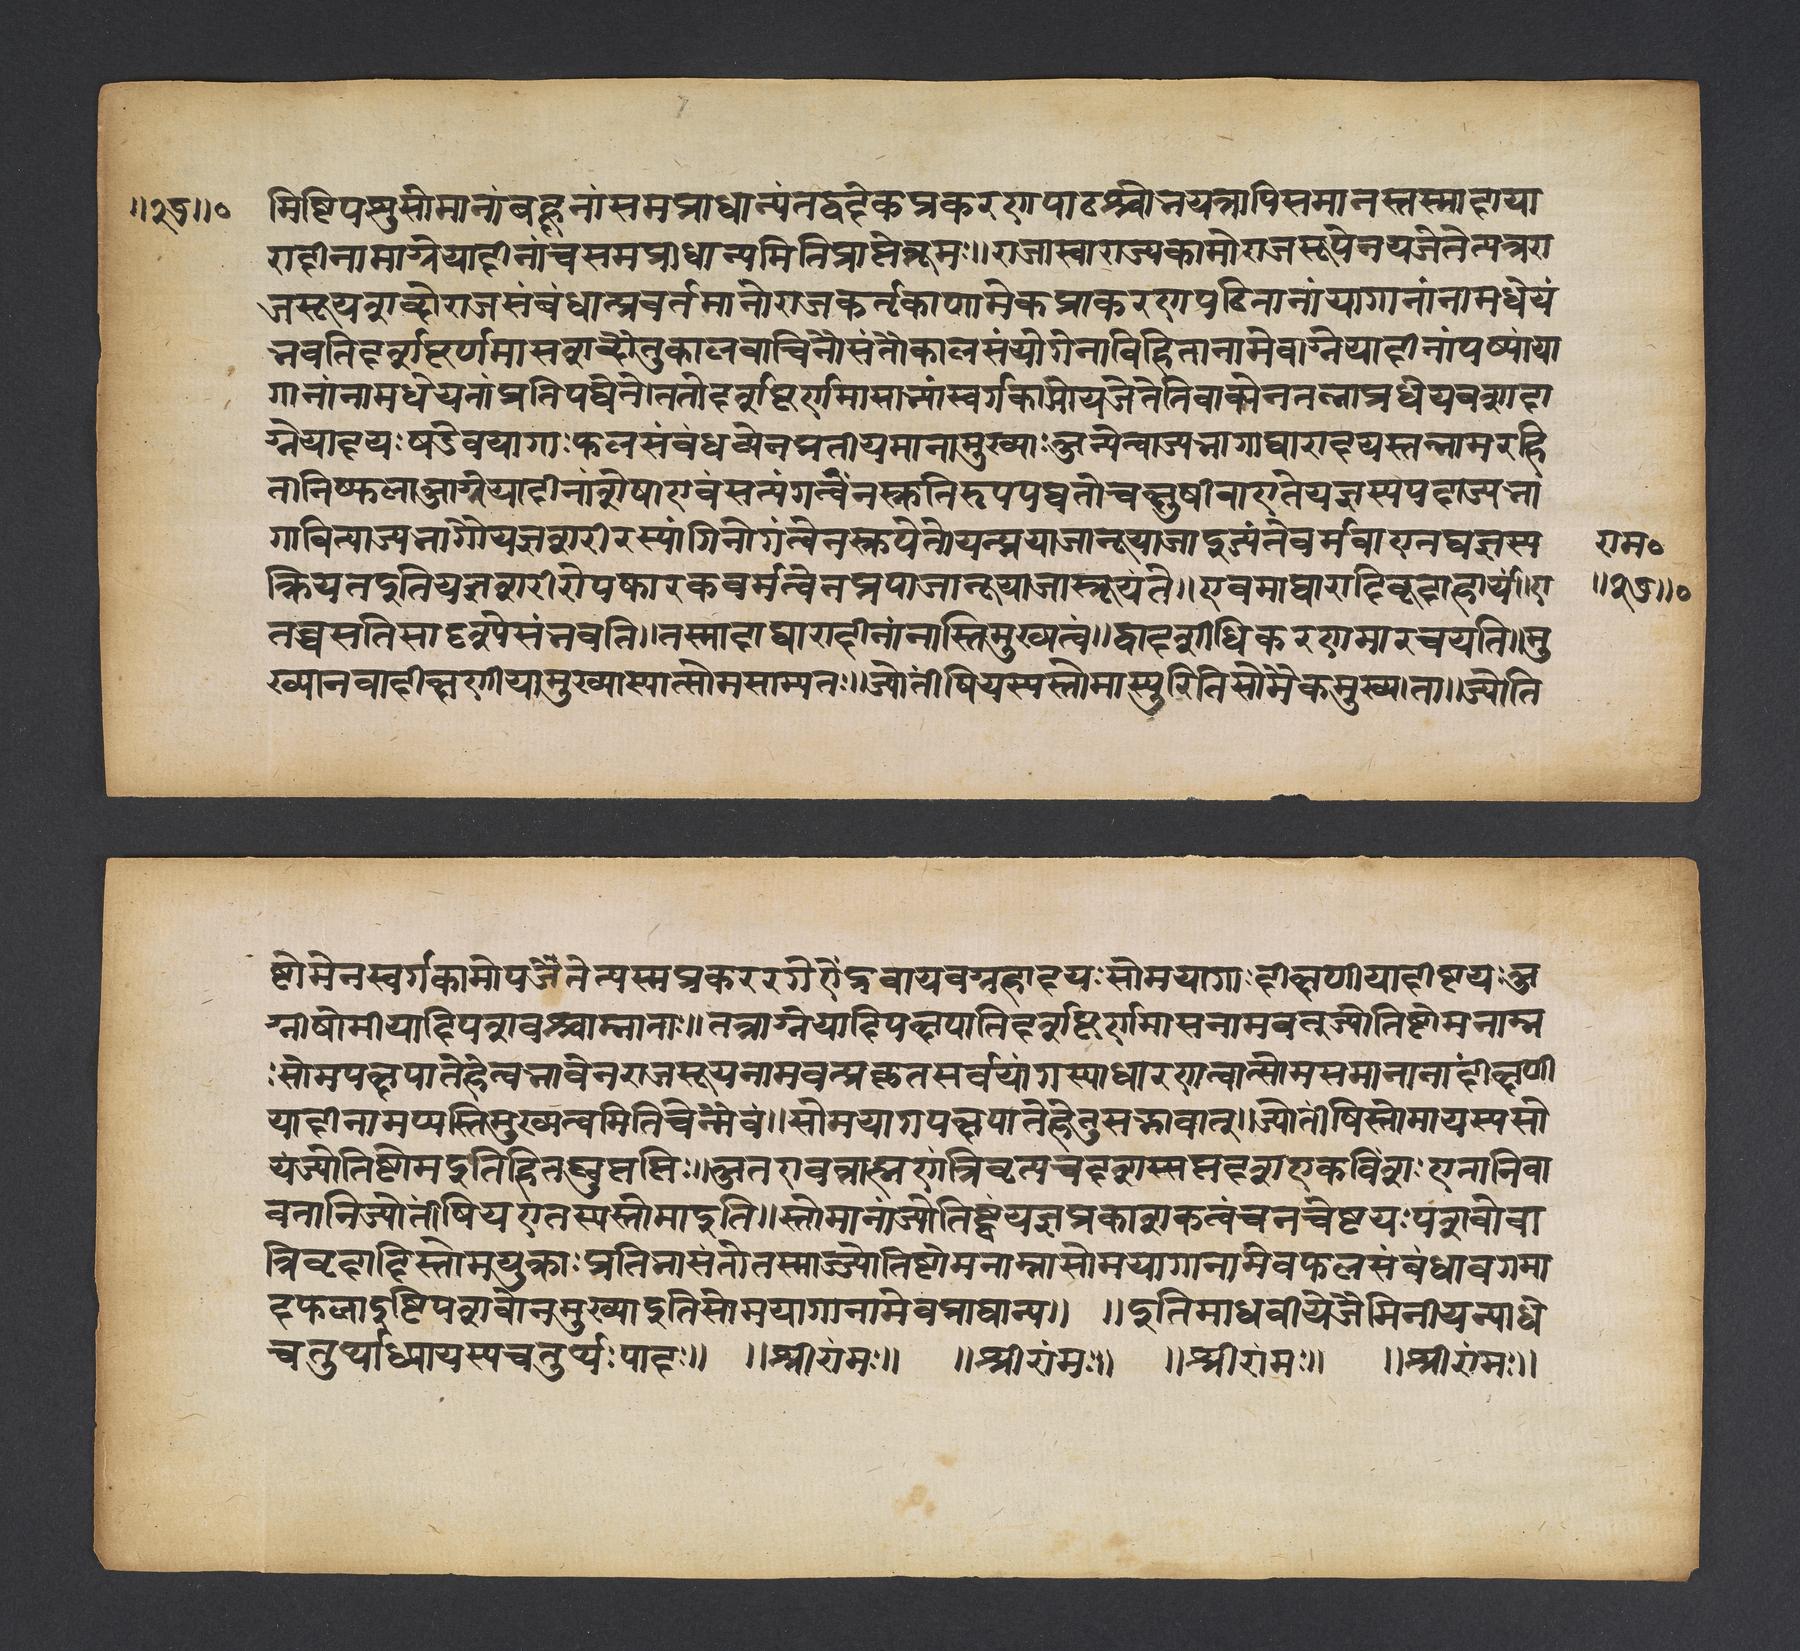 ॥२७॥०
मिष्टिपशुसोमानांबहूनांसमप्राधान्यंतद्वदेकप्रकरणपाठश्चोभयत्रापिसमानस्तस्मादाघा
रादीनामाग्नेयादीनांचसमप्राधान्यमितिप्राप्तेब्रूमः॥राजास्वाराज्यकामोराजसूयेनयजेतेत्यत्ररा
जसूयशब्दोराजसंबंधात्प्रवर्तमानोराजकर्तृकाणामेकप्राकरणपठितानांयागानांनामधेयं
भवतिदर्शपूर्णमासशब्दौतुकालवाचिनौसंतौकालसंयोगेनविहितानामेवाग्नेयादीनांषण्णांया
गानांनामधेयतांप्रतिपद्येते।ततोदर्शपूर्णमासाभ्यांस्वर्गकामोयजेतेतिवाक्येनतन्नामधेयवशादा
ग्नेयादयःषडेवयागाःफलसंबंधत्वेनप्रतीयमानामुख्याःअन्येत्वाज्यभागाघारादयस्तन्नामरहि
तानिष्फलाआग्नेयादीनांशेषाएवंसत्यंगत्वेनस्क्तनिरूपपद्यतेचक्षुषीवाएतेयज्ञस्ययदाज्यभा
गावित्याज्यभागौयज्ञशरीरस्यांगिनोगंत्वेनस्क्तयेतेयत्प्रयाजानूयाजाइज्यंतेवर्मवाएतद्यज्ञस्य
क्रियतइतियज्ञशरीरोपष्कारकवर्मत्वेनप्रयाजानूयाजास्त्रूयंते॥एवमाघारादिषूदाहार्यं॥ए
तच्चसतिसादृश्येसंभवति॥तस्मादाघारादीनांनास्तिमुख्यत्वं॥द्वादशाधिकरणमारचयति॥मु
ख्यानवादीक्षणीयामुख्यास्यात्सोमसाम्यतः॥ज्योतींषियस्यस्तोमास्युरितिसोमैकमुख्यता॥ज्योति
राम०
॥२७॥०
ष्टोमेनस्वर्गकामोयजेतेत्यस्मप्रकररगेऐंद्रवायवग्रहादयःसोमयागाःदीक्षणीयादीष्टयःअ
ग्नीषोमीयादिपशवश्चाम्नाताः॥तत्राग्नेयादिपक्षपातिदर्शपूर्णमासनामवत्ज्योतिष्टोमनाम्न
ःसोमपक्षपातेहेत्वभावेनराजसूयनामवत्प्रकृतसर्वयागस्याधारणत्वात्सोमसमानानांदीक्षणी
यादीनामप्यस्तिमुख्यत्वमितिचेन्मैवं॥सोमयागपक्षपातेहेतुसद्भावात्॥ज्योतींषिस्तोमायस्यसो
यंज्योतिष्टोमइतिहितद्व्युत्पत्तिः॥अतएवब्राह्मणंत्रिवृत्पचदशस्सप्तदशएकविंशःएतानिवा
वतानिज्योतींषियएतस्यस्तोमाइति॥स्तोमानांज्योतिष्ट्वंयज्ञप्रकाशकत्वंचनचेष्टयःपशवोवा
त्रिवृदादिस्तोमयुक्ताःप्रतिभासंतेतस्माज्ज्योतिष्टोमनाम्नासोमयागानामेवफलसंबंधावगमा
दफलाइष्टिपशवोनमुख्याइतिसोमयागानामेवप्राधान्य॥ ॥इतिमाधवीयेजैमिनीयन्याये
चतुर्थाध्यायस्यचतुर्थ्यःपादः॥ ॥श्रीरामः॥ ॥श्रीरामः॥ ॥श्रीरामः॥ ॥श्रीरामः॥